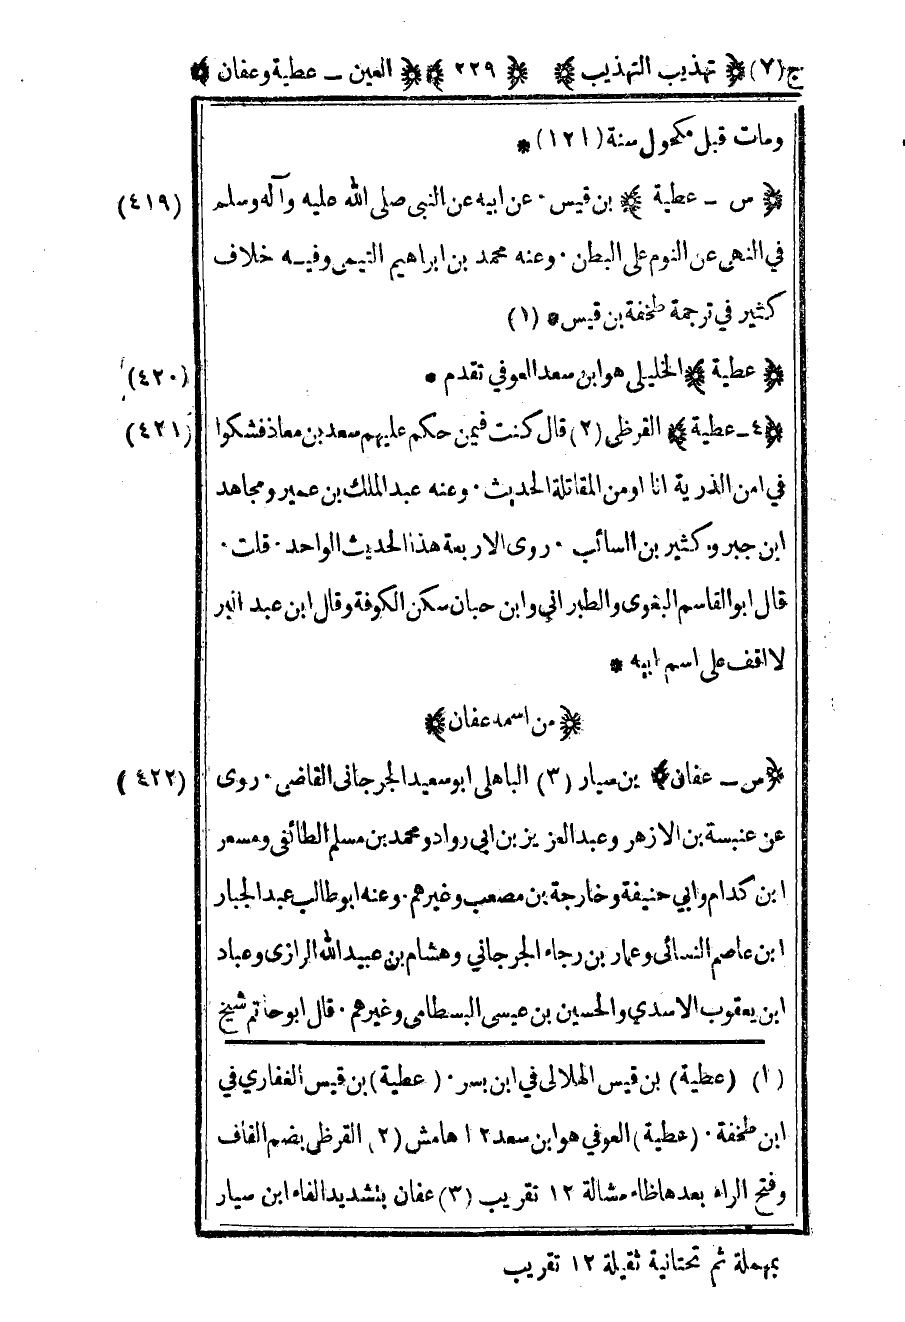 ج(٧) ﴿ تهذيب التهذيب ﴾ ﴿ ٢٢٩ ﴾ ﴿ العين ــ عطية وعفان ﴾
ومات قبل مكحول سنة (١٢١) *
(٤١٩) ﴿ س ــ عطية ﴾ بن قيس · عن ابيه عن النبى صلى الله عليه وآله وسلم
في النهى عن النوم على البطن · وعنه محمد بن ابراهيم التيمى وفيه خلاف
كثير في ترجمة طخفة بن قيس * (١)
(٤٢٠) ﴿ عطية ﴾ الخليلى هو ابن سعد العوفي تقدم *
(٤٢١) ﴿ ٤ ــ عطية ﴾ القرظى (٢) قال كنت فيمن حكم عليهم سعد بن معاذ فشكوا
في امن الذرية انا او من المقاتلة الحديث · وعنه عبد الملك بن عمير ومجاهد
ابن جبر وكثير بن السائب · روى الاربعة هذا الحديث الواحد · قلت ·
قال ابو القاسم البغوى والطبراني وابن حبان سكن الكوفة وقال ابن عبد البر
لا اقف على اسم ابيه *
﴿ من اسمه عفان ﴾
(٤٢٢) ﴿ س ــ عفان ﴾ بن سيار (٣) الباهلى ابو سعيد الجرجانى القاضى · روى
عن عنبسة بن الازهر وعبد العزيز بن ابى رواد ومحمد بن مسلم الطائفى ومسعر
ابن كدام وابي حنيفة وخارجة بن مصعب وغيرهم · وعنه ابو طالب عبد الجبار
ابن عاصم النسائى وعمار بن رجاء الجرجاني وهشام بن عبيد الله الرازى وعباد
ابن يعقوب الاسدي والحسين بن عيسى البسطامى وغيرهم · قال ابو حاتم شيخ
(١) (عطية) بن قيس الهلالى في ابن بسر · (عطية) بن قيس الغفاري في
ابن طخفة · (عطية) العوفي هو ابن سعد ١٢ هامش (٢) القرظى بضم القاف
وفتح الراء بعدها ظاء مشالة ١٢ تقريب (٣) عفان بتشديد الفاء ابن سيار
بمهملة ثم تحتانية ثقيلة ١٢ تقريب